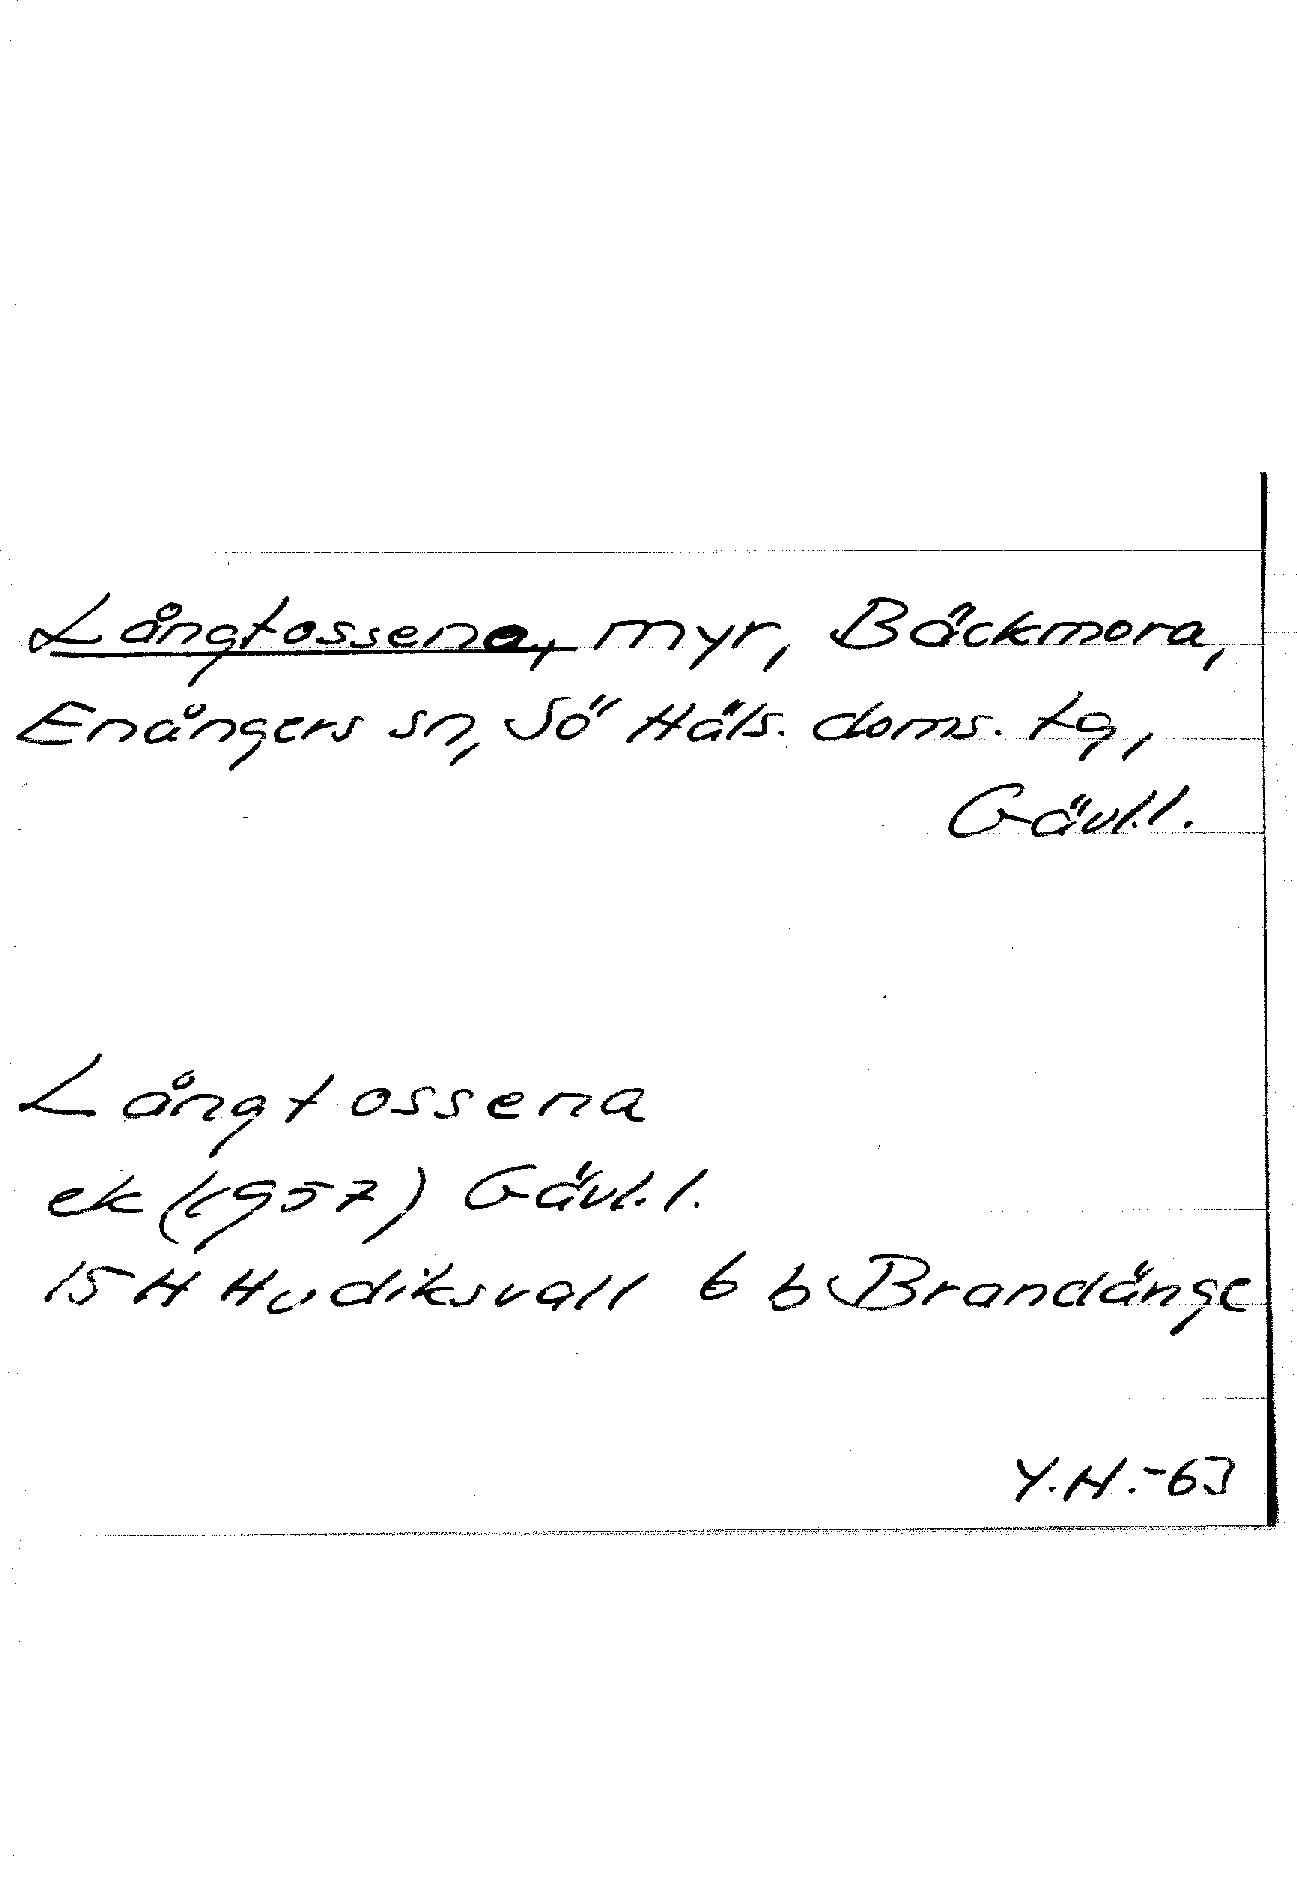 Långtossena, myr, Bäckmora,
Enångers sn, Sö Häls. doms. tg,
Gävl.l.
Långtossena
ek (1957) Gävl.l.
15 H Hudiksvall 6 b Brandänge
Y.H.-63